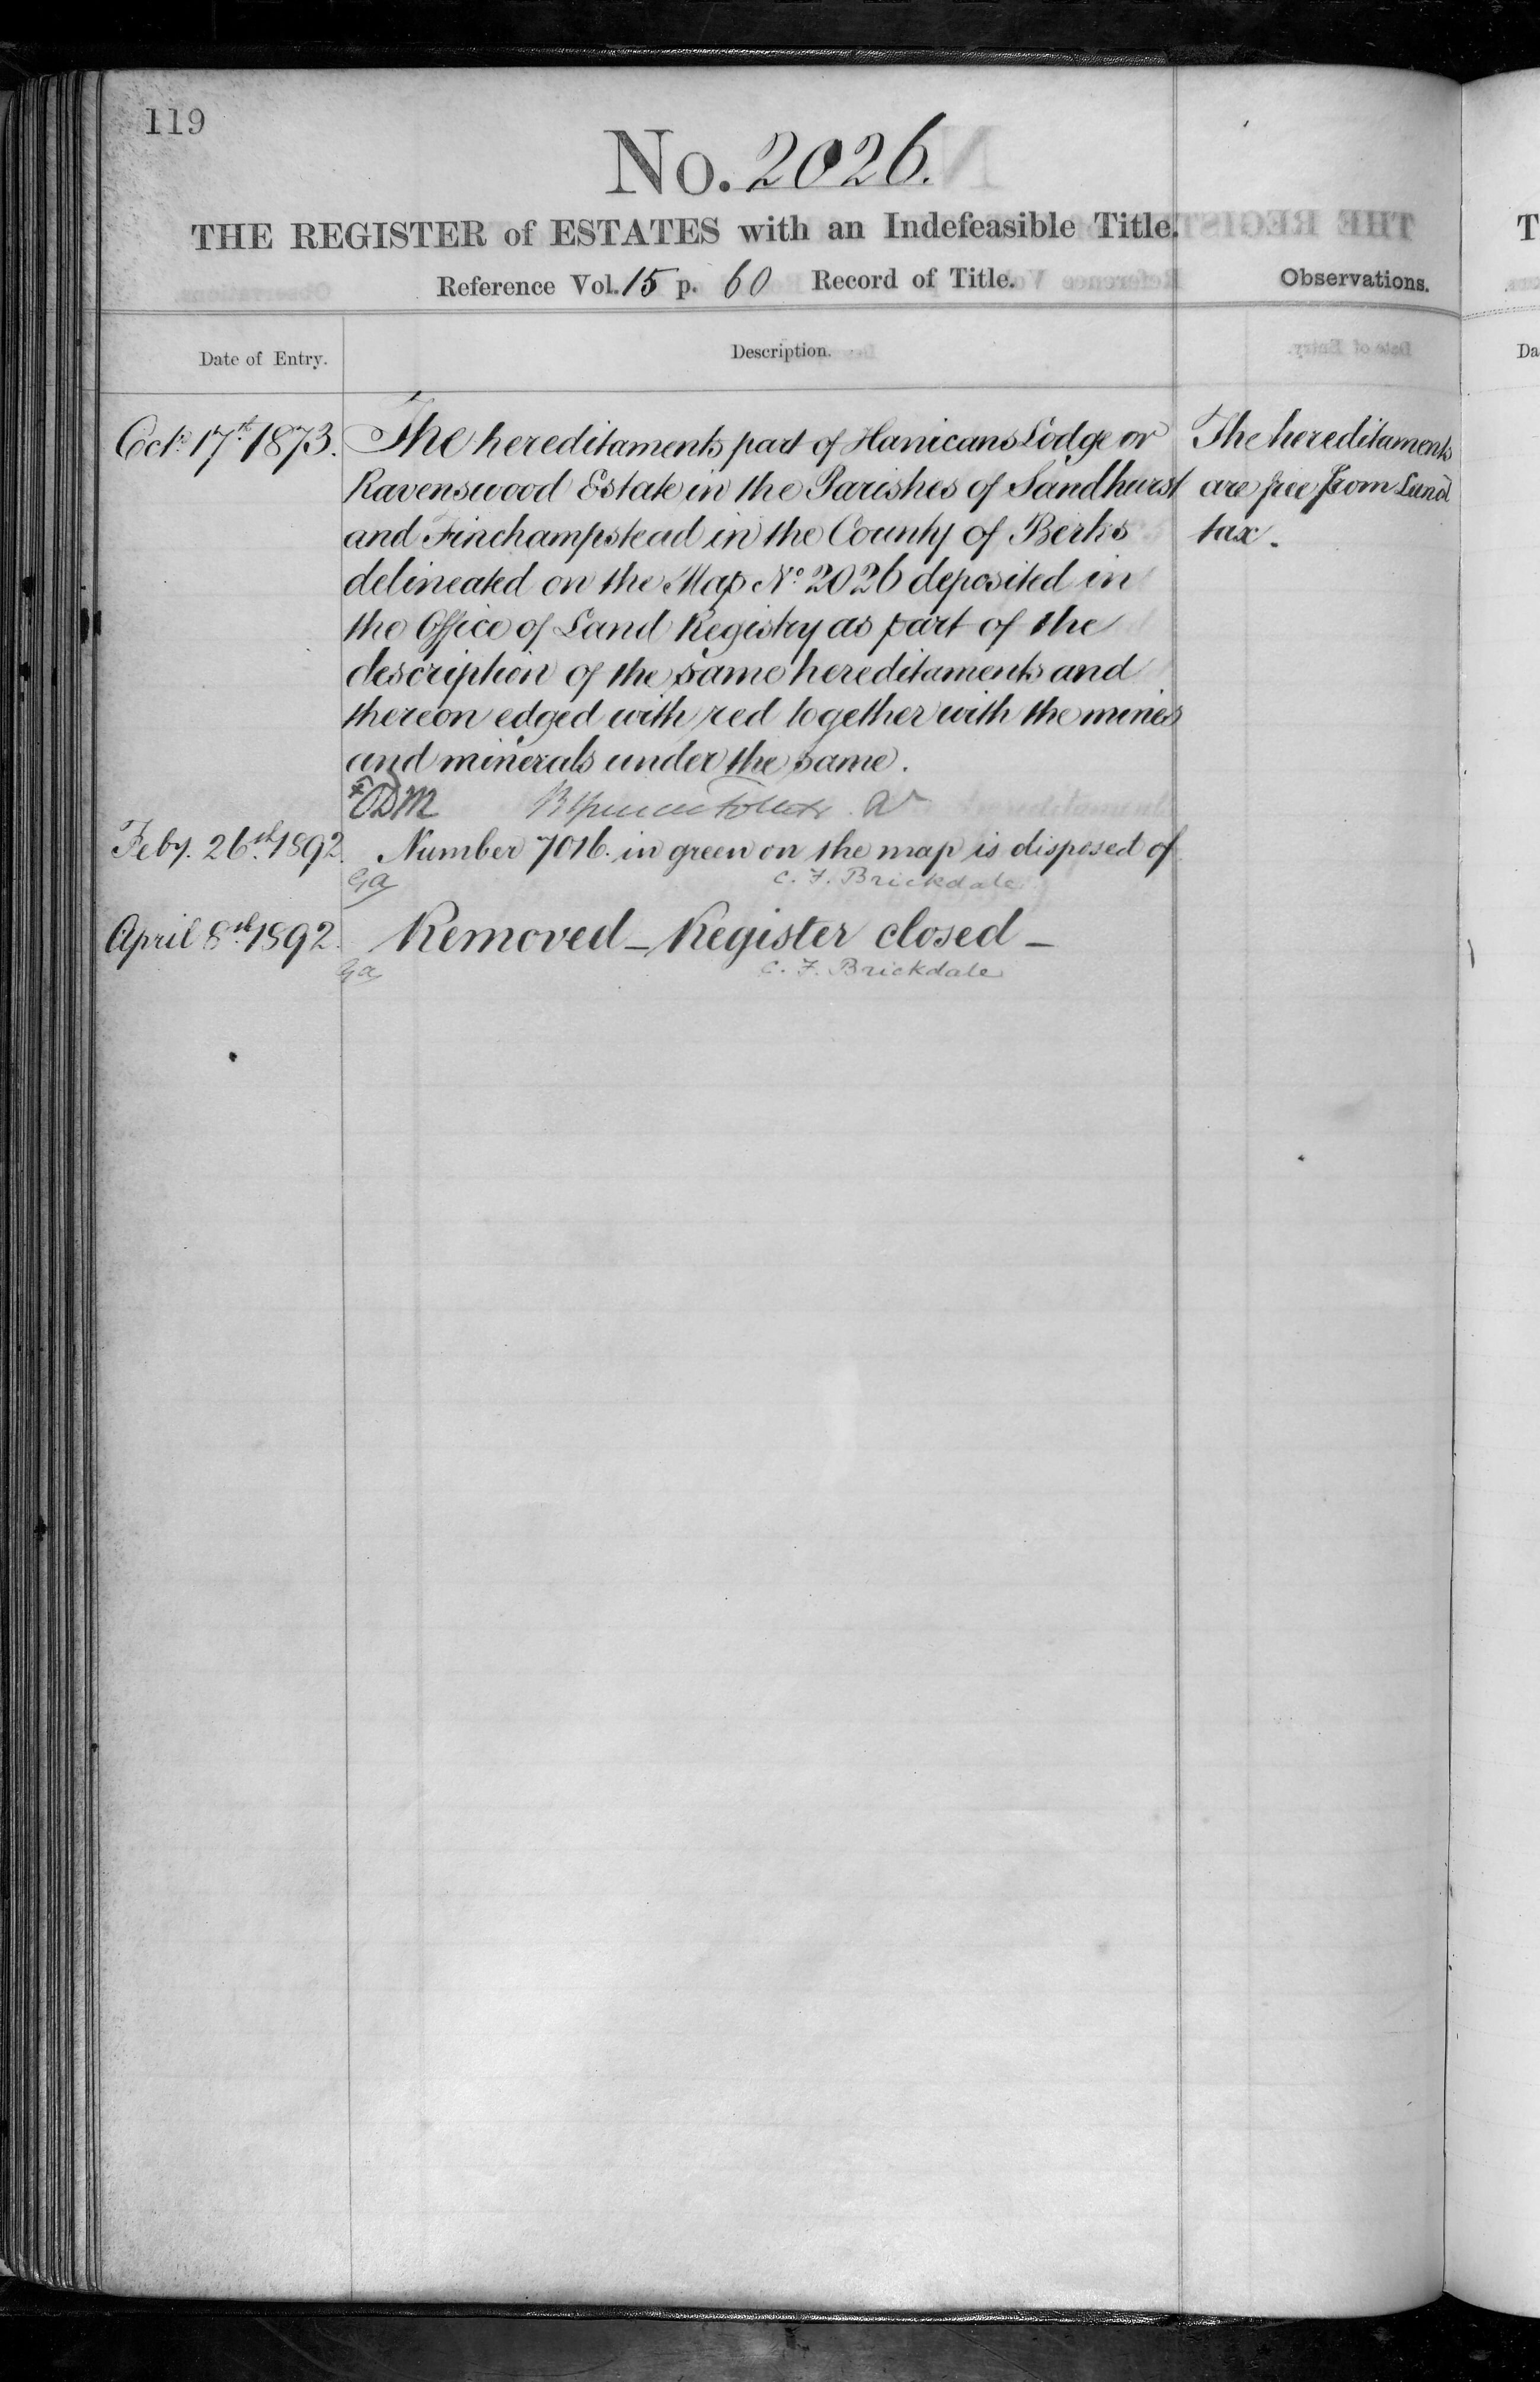 119
No. 2026.
THE REGISTER of ESTATES with an Indefeasible Title.
Reference Vol. 15 p. 60 Record of Title.
Observations.
Date of Entry.
Description.
Octr. 17th 1873.
The hereditaments part of Hanicans Lodge or
Ravenswood Estate in the Parishes of Sandhurst
and Finchampstead in the County of Berks
delineated on the Map No. 2026 deposited in
the Office of Land Registry as part of the
description of the same hereditaments and
thereon edged with red together with the mines
and minerals under the same.
The hereditaments
are free from Land
tax.
ODM
Feby. 26th 1892.
Number 7016. in green on the map is disposed of
Ga
C. F. Brickdale
April 8th 1892.
Removed - Register closed -
Ga
C. F. Brickdale
T
Da